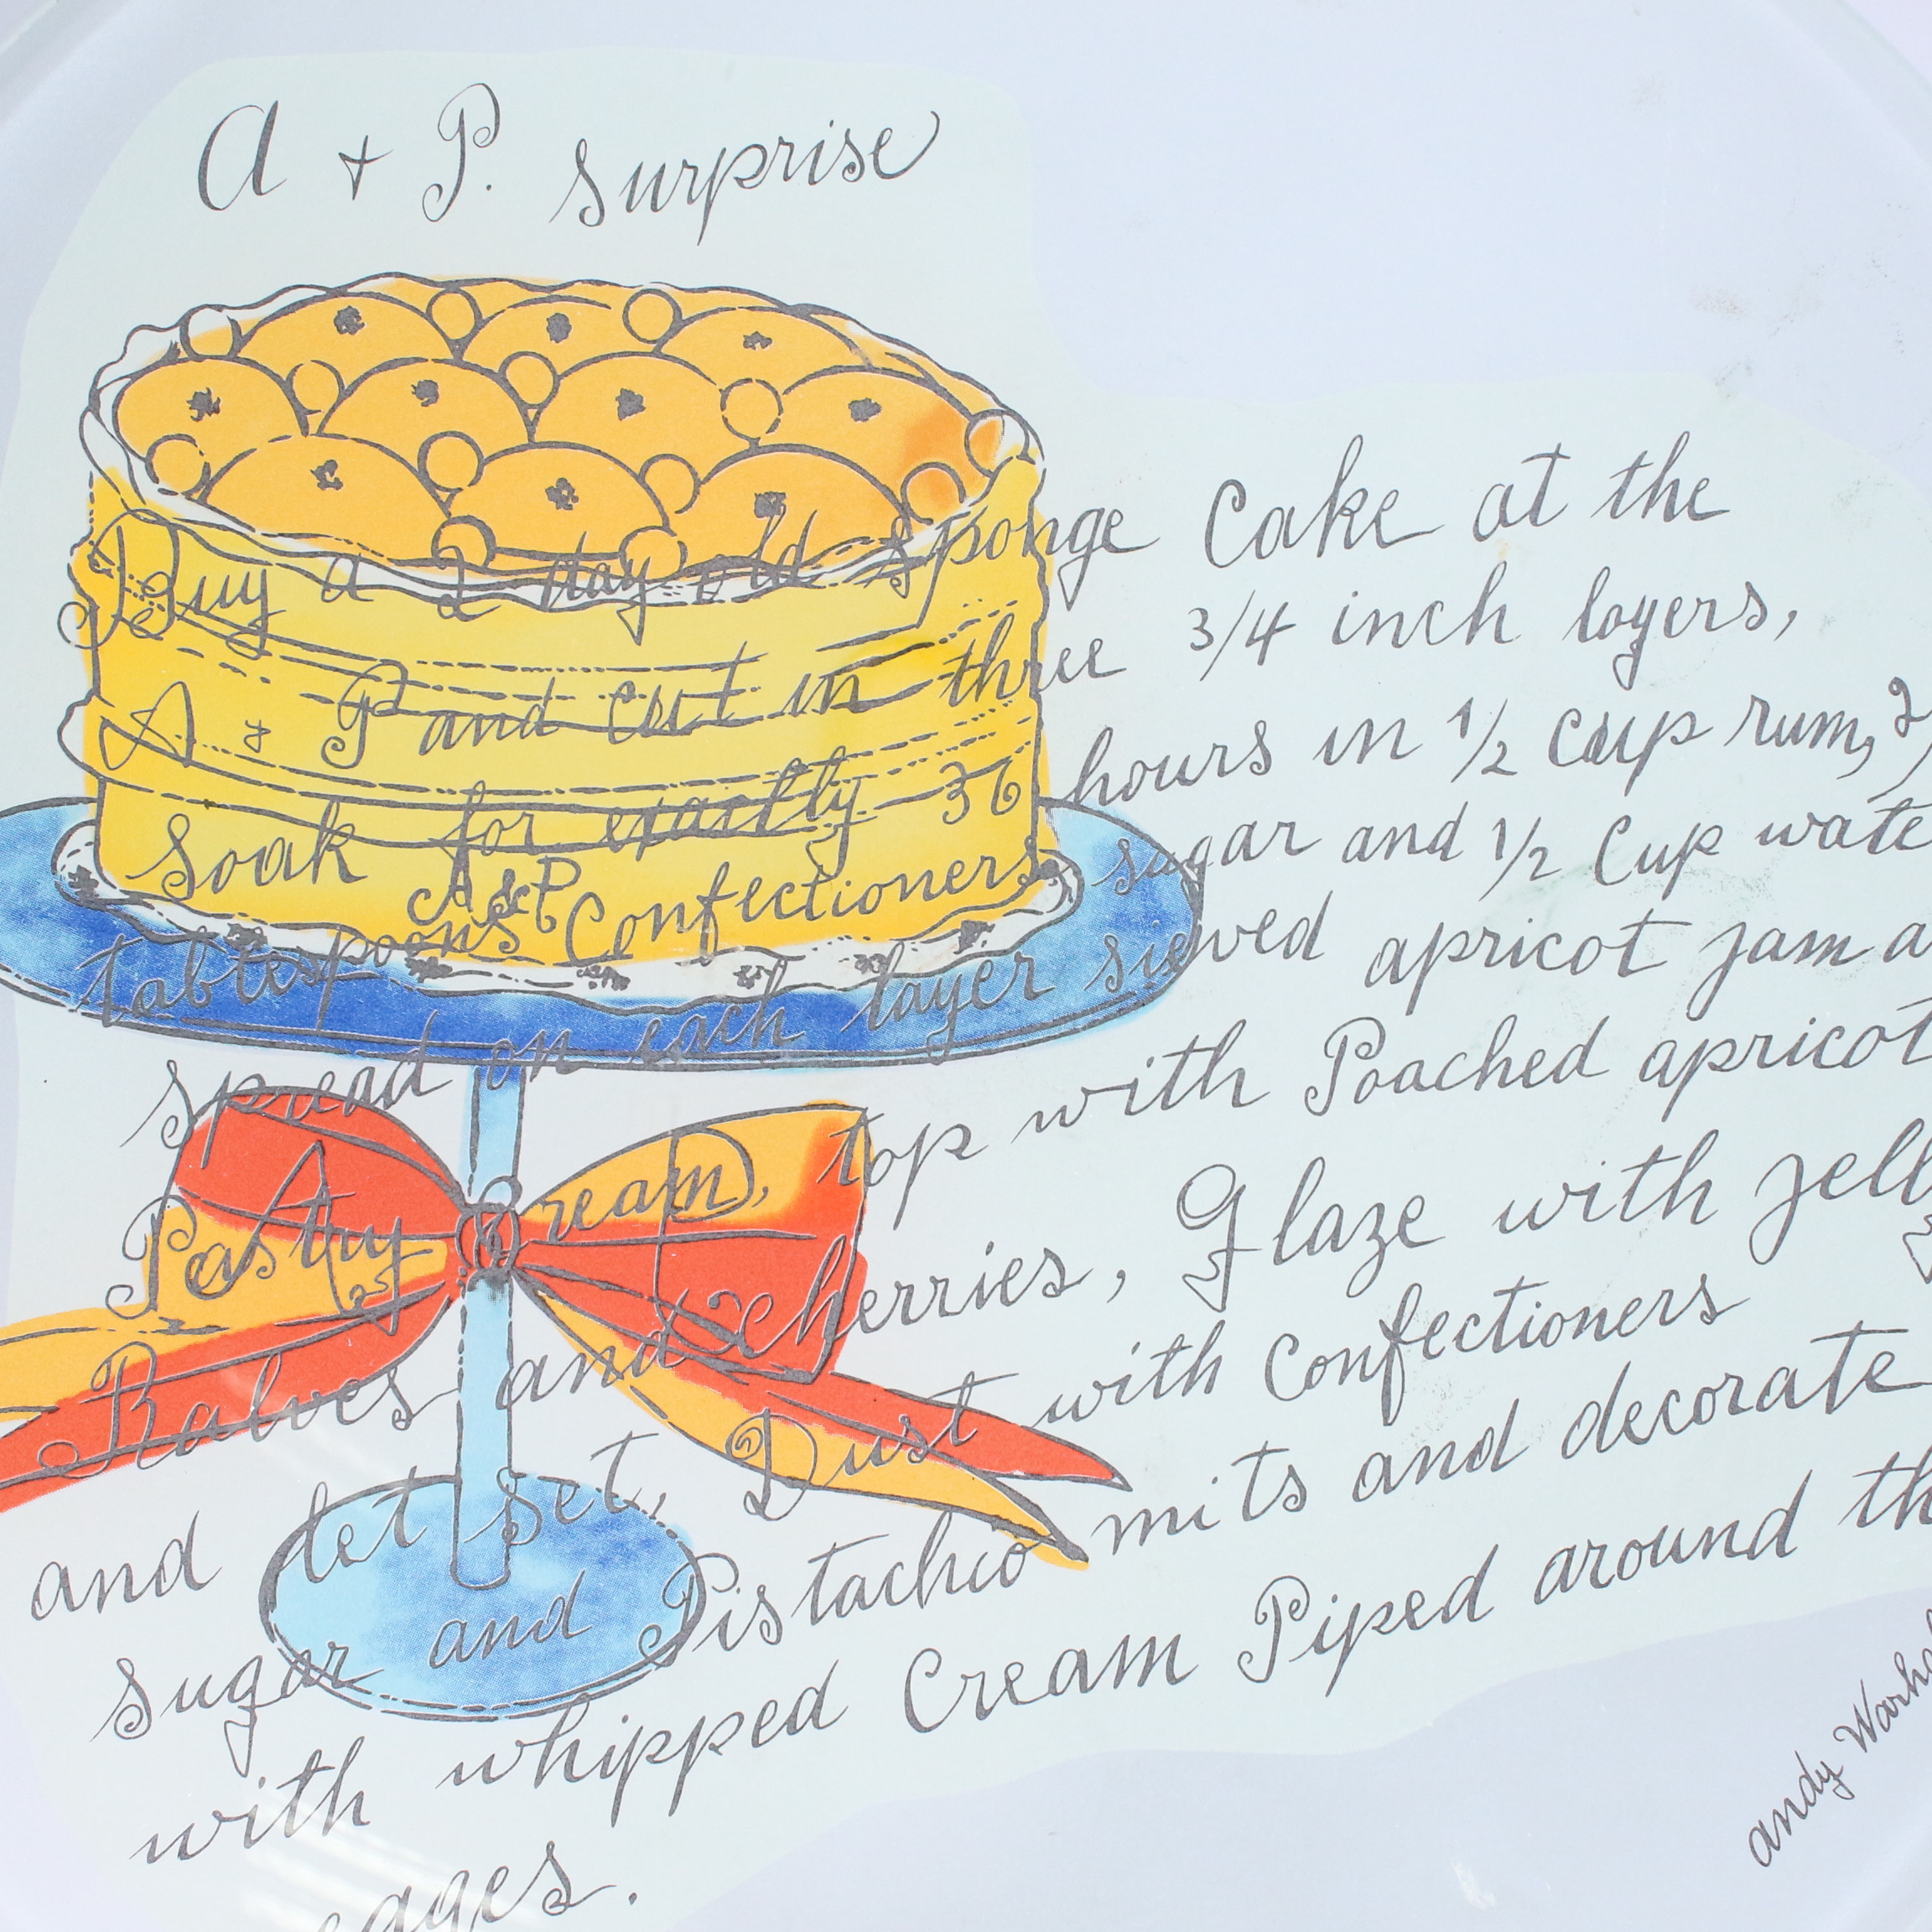 A + P. surprise
Buy a 2 day old sponge Cake at the
A & P and cut in three 3/4 inch layers,
soak for exactly 36 hours in 1/2 cup rum, 2
A & P Confectioners sugar and 1/2 Cup wate
tablespoons
spread on each layer sieved apricot jam a
Pastry Cream, top with Poached apricot
Halves and cherries, Glaze with jell
and let set, Dust with Confectioners
sugar and Pistachio nuts and decorate
with whipped Cream Piped around th
edges.
andy Warho